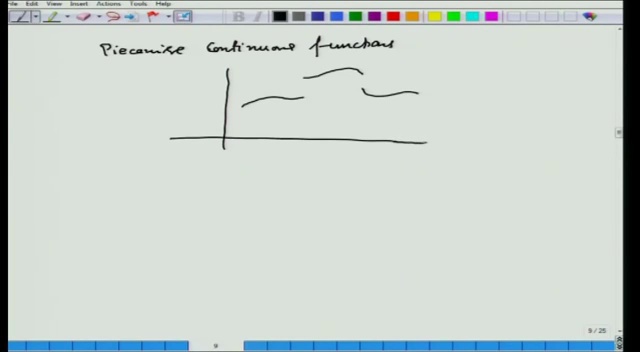 File Edit View Insert Actions Tools Help
Piecewise continuous functions
9 / 25
9